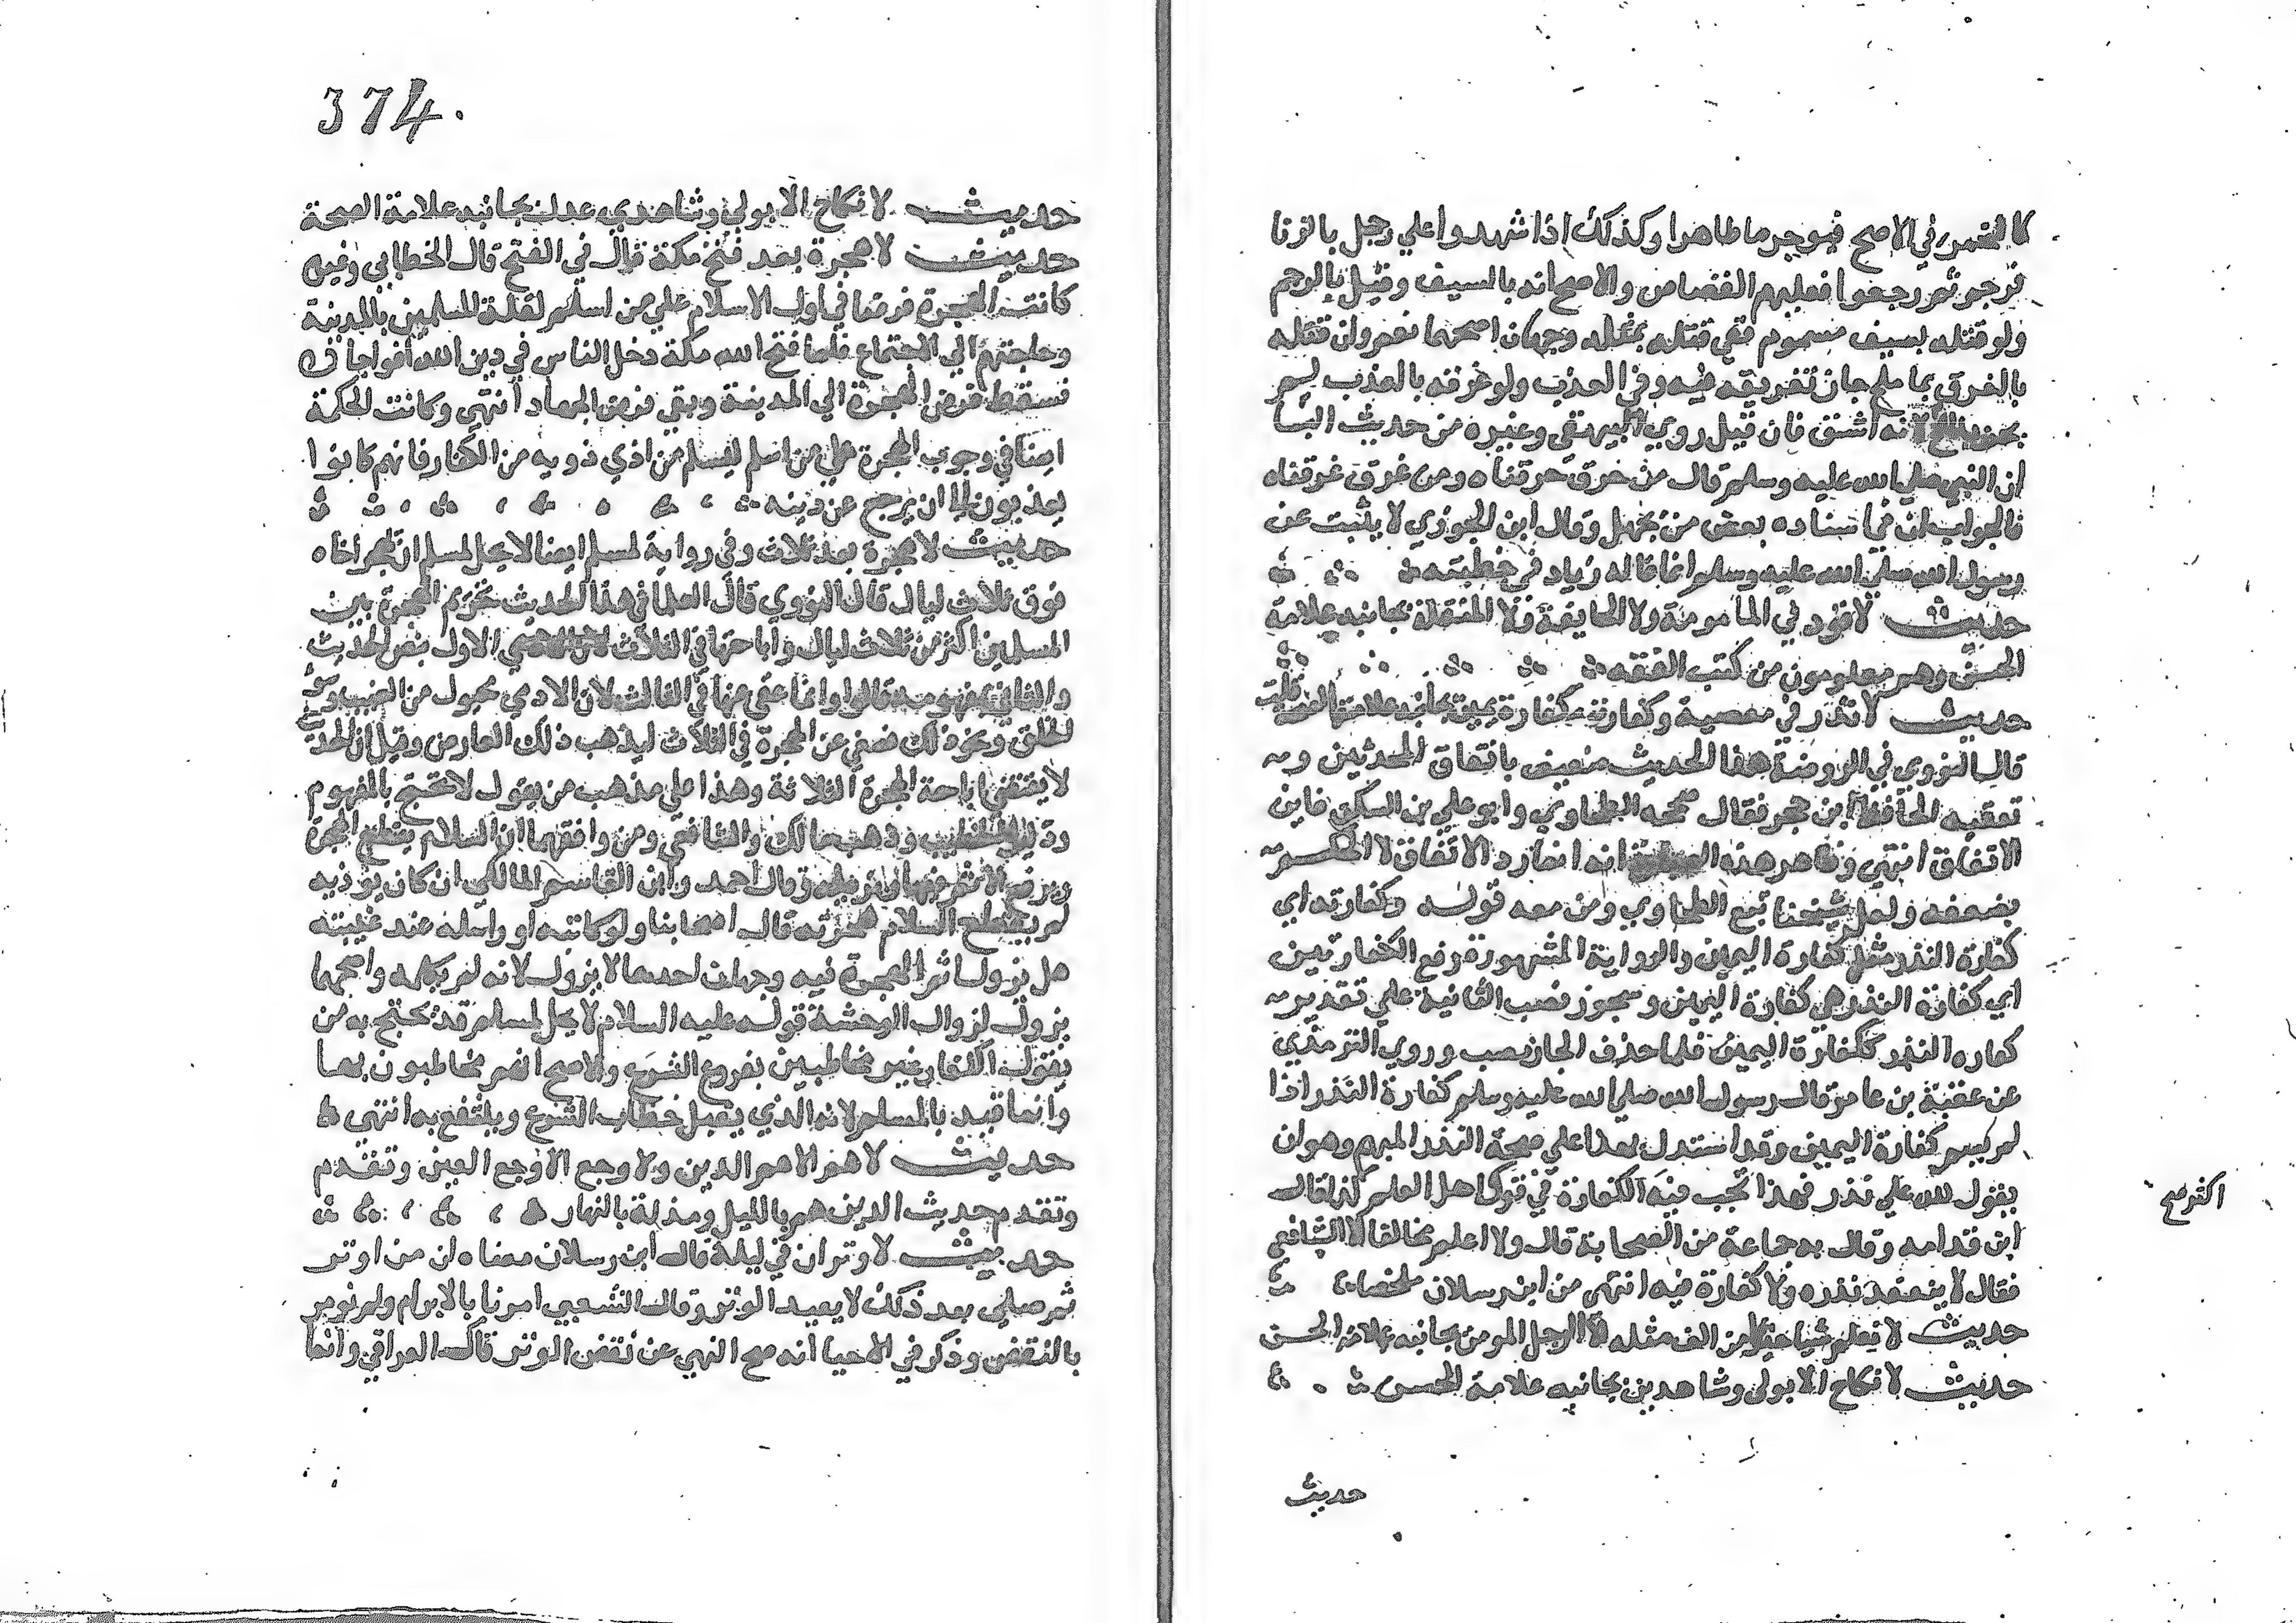 كالخمر في الاصح فيوجر ما طاهرا وكذلك اذا شهدوا علي رجل بالزنا
فرجم ثم رجعوا فعليهم القصاص والاصح انه بالسيف وقيل بالرجم
ولو قتله بسيف مسموم ففي قتله بمثله وجهان اصحهما نعم وان قتله
بالغرق بما ملح جاز تغريقه فيه وفي العذب ولو غرقه بالعذب لم يجز
لانه اشق فان قيل روي البيهقي وغيره من حديث البرا
ان النبي صلي الله عليه وسلم قال من حرق حرقناه ومن غرق غرقناه
فالجواب ان في اسناده بعض من يجهل وقال ابن الجوزي لا يثبت عن
رسول الله صلي الله عليه وسلم انما قاله زياد في خطبته
حديث لا قود في المامومة ولا الجايفة ولا المنقلة بجانبه علامة
الحسن وهم معلومون من كتب الفقه
حديث لا نذر في معصية وكفارته كفارة يمين بجانبه علامة الصحة قلت
قال النووي في الروضة هذا الحديث ضعيف باتفاق المحدثين و
تعقبه الحافظ ابن حجر فقال صححه الطحاوي وابو علي بن السكن فاين
الاتفاق انتهي وظاهر هذه انه انما رد الاتفاق لا الحكم
بضعفه ولعل شيخنا تبع الطحاوي ومن معه قوله وكفارته اي
كفارة النذر مثل كفارة اليمين والرواية المشهورة رفع الكفارتين
اي كفارة النذر هي كفارة اليمين ويجوز نصب الثانية علي تقدير
كفاره النذر ككفارة اليمين فلما حذف الجار نصب وروي الترمذي
عن عقبة بن عامر قال رسول الله صلي الله عليه وسلم كفارة النذر اذا
لم يسم كفارة اليمين وقد استدل بهذا علي صحة النذر المبهم وهو ان
يقول لله علي نذر فهذا تجب فيه الكفارة في قول اهل العلم كذا قال
اكثر صح
ابن قدامه وقال به جماعة من الصحابة قال ولا اعلم مخالفا الا الشافعي
فقال لا ينعقد نذره ولا كفارة فيه انتهي من ابن رسلان ملخصا
حديث لا نعلم شيا خيرا من الف مثله الا الرجل المومن بجانبه علامة الحسن
حديث لا نكاح الا بولي وشاهدين بجانبه علامة الحسن
حديث
374.
حديث لا نكاح الا بولي وشاهدي عدل بجانبه علامة الصحة
حديث لا هجرة بعد فتح مكة قال في الفتح قال الخطابي وغيره
كانت الهجرة فرضا في اول الاسلام علي من اسلم لقلة المسلمين بالمدينة
وحاجتهم الي الاجتماع فلما فتح الله مكة دخل الناس في دين الله افواجا
فسقط فرض الهجرة الي المدينة وبقي فرض الجهاد انتهي وكانت الحكمة
ايضا في وجوب الهجرة علي من اسلم ليسلم من اذي ذويه من الكفار فانهم كانوا
يعذبون الي ان يرجع عن دينه
حديث لا هجرة بعد ثلاث وفي رواية لمسلم ايضا لا يحل لمسلم ان يهجر اخاه
فوق ثلاث ليال قال النووي قال العلما في هذا الحديث تحريم الهجرة بين
المسلمين اكثر من ثلاث ليال واباحتها في الثلاث الاول بنص الحديث
والثاني بمفهومه قالوا وانما عفي عنها في الثلاث لان الادمي مجبول من الغضب وسو
الخلق ونحو ذلك فعفي عن الهجرة في الثلاث ليذهب ذلك العارض وقيل ان الحديث
لا يقتضي اباحة الهجرة الثلاثة وهذا علي مذهب من يقول لا يحتج بالمفهوم
ودليل الخطاب وذهب مالك والشافعي ومن وافقهما ان السلام يقطع الهجرة
ويرفع الاثم فيها ويزيله وقال احمد وابن القاسم المالكي ان كان يوذيه
لم يقطع السلام هجرته قال اصحابنا ولو كاتبه او راسله عند غيبته
هل يزول اثم الهجرة فيه وجهان احدهما لا يزول لانه لم يكلمه واصحهما
يزول لزوال الوحشة قوله عليه السلام لا يحل لمسلم قد يحتج به من
يقول الكفار غير مخاطبين بفروع الشرع والاصح انهم مخاطبون بها
وانما قيد بالمسلم لانه الذي يقبل خطاب الشرع وينتفع به انتهي
حديث لا هم الا هم الدين ولا وجع الا وجع العين وتقدم
وتقدم حديث الدين هم بالليل ومذلة بالنهار
حديث لا وتران في ليلة قال ابن رسلان معناه ان من اوتر
ثم صلي بعد ذلك لا يعيد الوتر وقال الشعبي امرنا بالابرام ولم نومر
بالنقض وذكر في الاحيا انه صح النهي عن نقض الوتر قال العراقي وانما